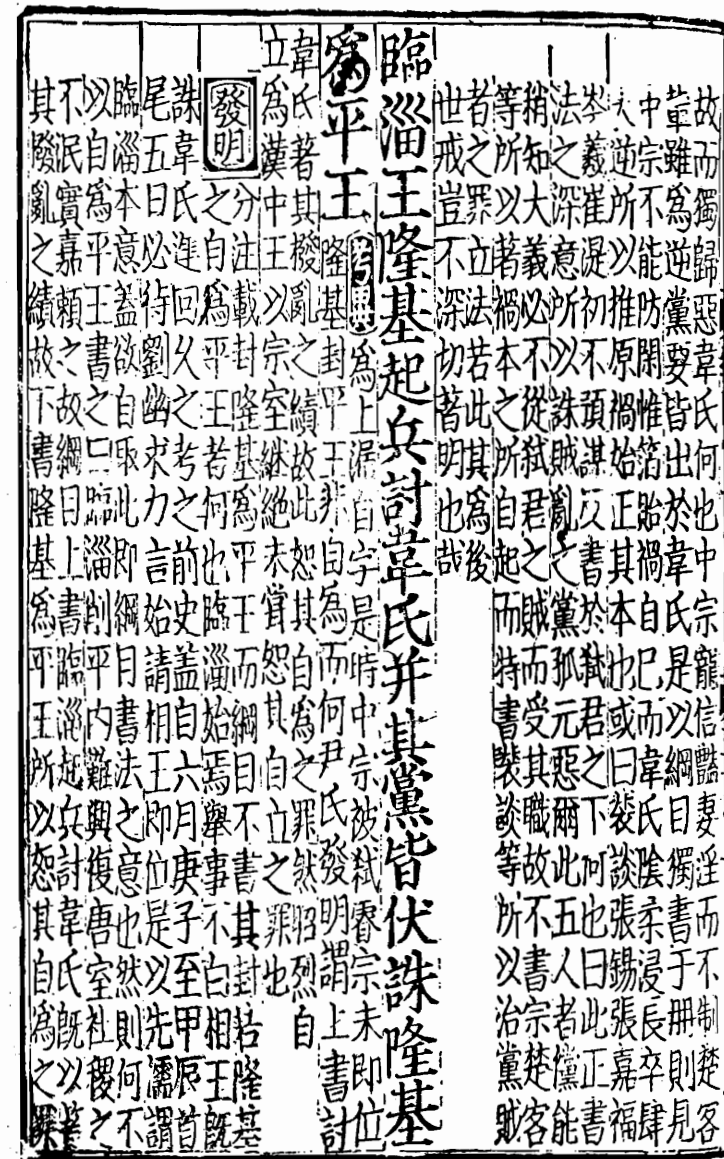 故而獨歸惡韋氏何也中宗寵信豔妻淫而不制楚客
輩雖爲逆黨要皆出於韋氏是以綱目獨書于冊則見
中宗不能防閑惟箔貽禍自已而韋氏陰柔浸長卒肆
大逆所以推原禍始正其本也或曰裴談張錫張嘉福
岑羲崔湜初不預謀又書於弒君之下何也曰此正書
法之深意所以誅賊亂之黨孤元惡爾此五人者儻能
稍知大義必不從弒君之賊而受其職故不書宗楚客
等所以著禍本之所自起而特書裴談等所以治黨賊
者之罪立法若此其爲後
世戒豈不深切著明也哉
臨淄王隆基起兵討韋氏并其黨皆伏誅隆基
爲平王
考異爲上漏自字是時中宗被弒睿宗未即位
隆基封平王非自爲而何尹氏發明謂上書討
韋氏著其撥亂之績故此恕其自爲之罪然昭烈自
立爲漢中王以宗室繼絕未嘗恕其自立之罪也
發明
分注載封隆基爲平王而綱目不書其封若隆基
之自爲平王者何也臨淄始焉舉事不白相王既
誅韋氏遲回久之考之前史蓋自六月庚子至甲辰首
尾五日必待劉幽求力言始請相王即位是以先儒謂
臨淄本意蓋欲自取此即綱目書法之意也然則何不
以自爲平王書之曰臨淄削平內難興復唐室社稷之
不泯實嘉賴之故綱目上書臨淄起兵討韋氏既以著
其撥亂之績故下書隆基爲平王所以恕其自爲之罪